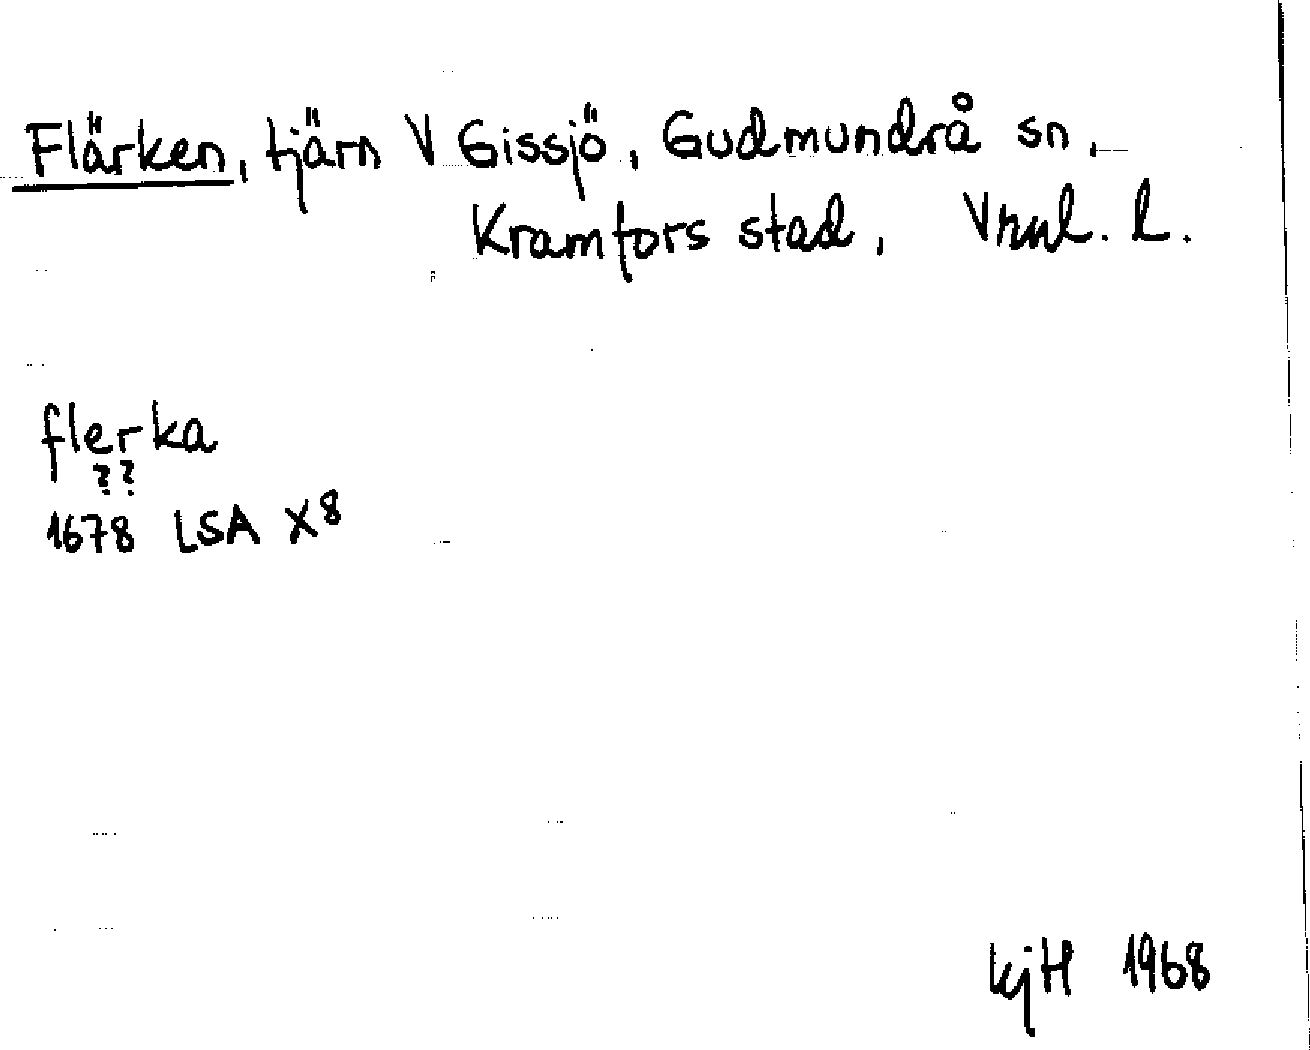 Flärken, tjärn V Gissjö, Gudmundrå sn,
Kramfors stad, Vrnl. l.
flerka
??
1678 LSA X8
kjH 1968